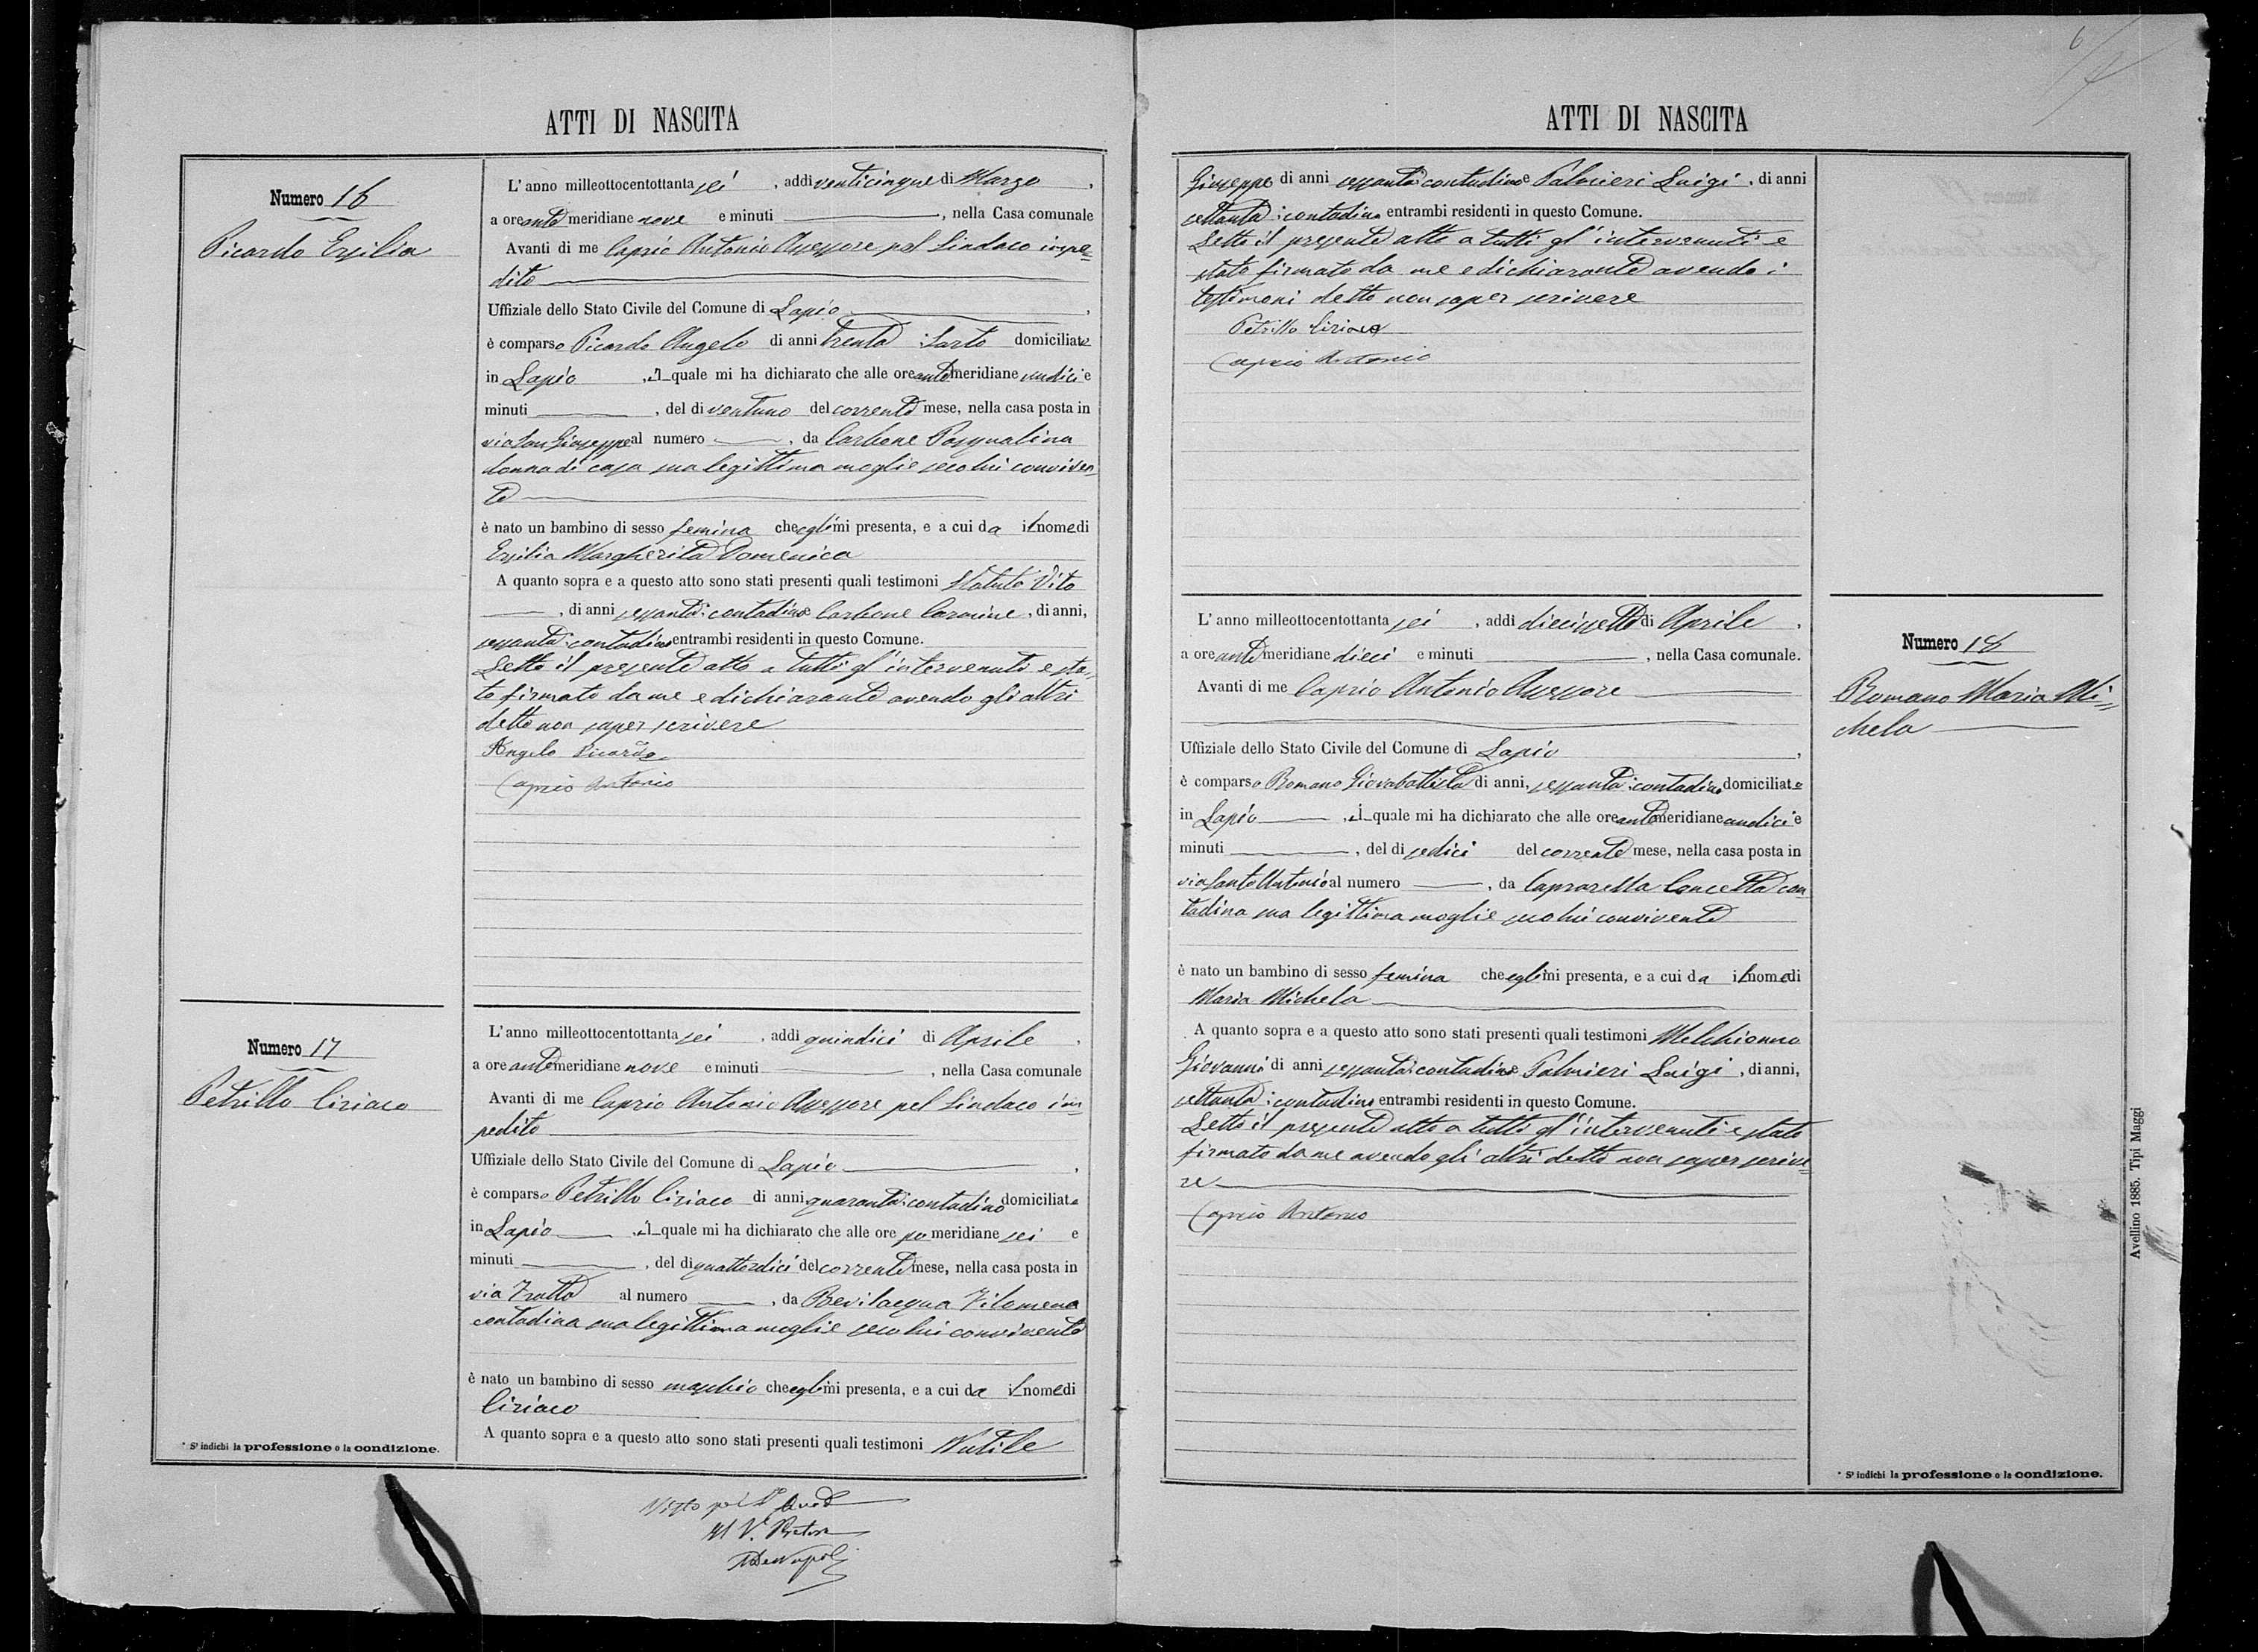 ATTI DI NASCITA
Numero 16
Picardo Ersilia
L'anno milleottocentottanta sei , addì venticinque di Marzo ,
a ore ante meridiane nove e minuti , nella Casa comunale
Avanti di me Caprio Antonio Assessore pel Sindaco impe=
dito
Uffiziale dello Stato Civile del Comune di Lapio ,
è comparso Picardo Angelo di anni trenta : Sarto domiciliato
in Lapio , il quale mi ha dichiarato che alle ore ante meridiane undici e
minuti , del dì ventuno del corrente mese, nella casa posta in
via San Giuseppe al numero , da Carbone Pasqualina
donna di casa sua legittima moglie seco lui conviven=
te
è nato un bambino di sesso femina che egli mi presenta, e a cui da il nome di
Ersilia Margherita Domenica
A quanto sopra e a questo atto sono stati presenti quali testimoni Statuto Vito
, di anni sessanta : contadino e Carbone Carmine , di anni,
sessanta : contadino entrambi residenti in questo Comune.
Letto il presente atto a tutti gl'intervenuti e sta=
to firmato da me e dichiarante avendo gli altri
detto non saper scrivere
Angelo Picardo
Caprio Antonio
Numero 17
Petrillo Ciriaco
L'anno milleottocentottanta sei , addì quindici di Aprile ,
a ore ante meridiane nove e minuti , nella Casa comunale
Avanti di me Caprio Antonio Assessore pel Sindaco im=
pedito
Uffiziale dello Stato Civile del Comune di Lapio ,
è comparso Petrillo Ciriaco di anni quaranta : contadino domiciliato
in Lapio , il quale mi ha dichiarato che alle ore po meridiane sei e
minuti , del dì quattordici del corrente mese, nella casa posta in
via Tratta al numero , da Bevilacqua Filomena
contadina sua legittima moglie seco lui convivente
è nato un bambino di sesso maschio che egli mi presenta, e a cui da il nome di
Ciriaco
A quanto sopra e a questo atto sono stati presenti quali testimoni Nutile
* Si indichi la professione o la condizione.
Visto
Il V. Pretore
De Napoli
6/7
ATTI DI NASCITA
Giuseppe di anni sessanta : contadino e Palmieri Luigi , di anni
settanta : contadino entrambi residenti in questo Comune.
Letto il presente atto a tutti gl'intervenuti e
stato firmato da me e dichiarante avendo i
testimoni detto non saper scrivere
Petrillo Ciriaco
Caprio Antonio
Numero 18
Romano Maria Mi=
chela
L'anno milleottocentottanta sei , addì diecissette di Aprile ,
a ore ante meridiane dieci e minuti , nella Casa comunale.
Avanti di me Caprio Antonio Assessore
Uffiziale dello Stato Civile del Comune di Lapio ,
è comparso Romano Giovabattista di anni, sessanta : contadino domiciliato
in Lapio , il quale mi ha dichiarato che alle ore ante meridiane undici e
minuti , del dì sedici del corrente mese, nella casa posta in
via Santo Antonio al numero , da Capraretta Concetta con
tadina sua legittima moglie seco lui convivente
è nato un bambino di sesso femina che egli mi presenta, e a cui da il nome di
Maria Michela
A quanto sopra e a questo atto sono stati presenti quali testimoni Melchionno
Giovanni di anni sessanta : contadino e Palmieri Luigi , di anni,
settanta : contadino entrambi residenti in questo Comune.
Letto il presente atto a tutti gl'intervenuti e stato
firmato da me avendo gli altri detto non saper scrive=
re
Caprio Antonio
* Si indichi la professione o la condizione.
Avellino 1885. Tipi Maggi